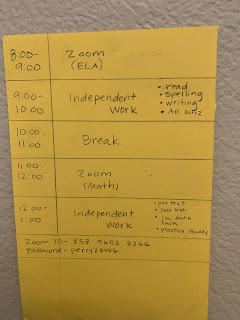 8:00-
9:00
Zoom
(ELA)
9:00-
10:00
Independent
Work
• read
• spelling
• writing
• AR quiz
10:00-
11:00
Break
11:00-
12:00
Zoom
(Math)
12:00-
1:00
Independent
Work
• pretest
• post test
• math
facts
• practice Buddy
Zoom ID- 853 9652 3266
Password- perry23456